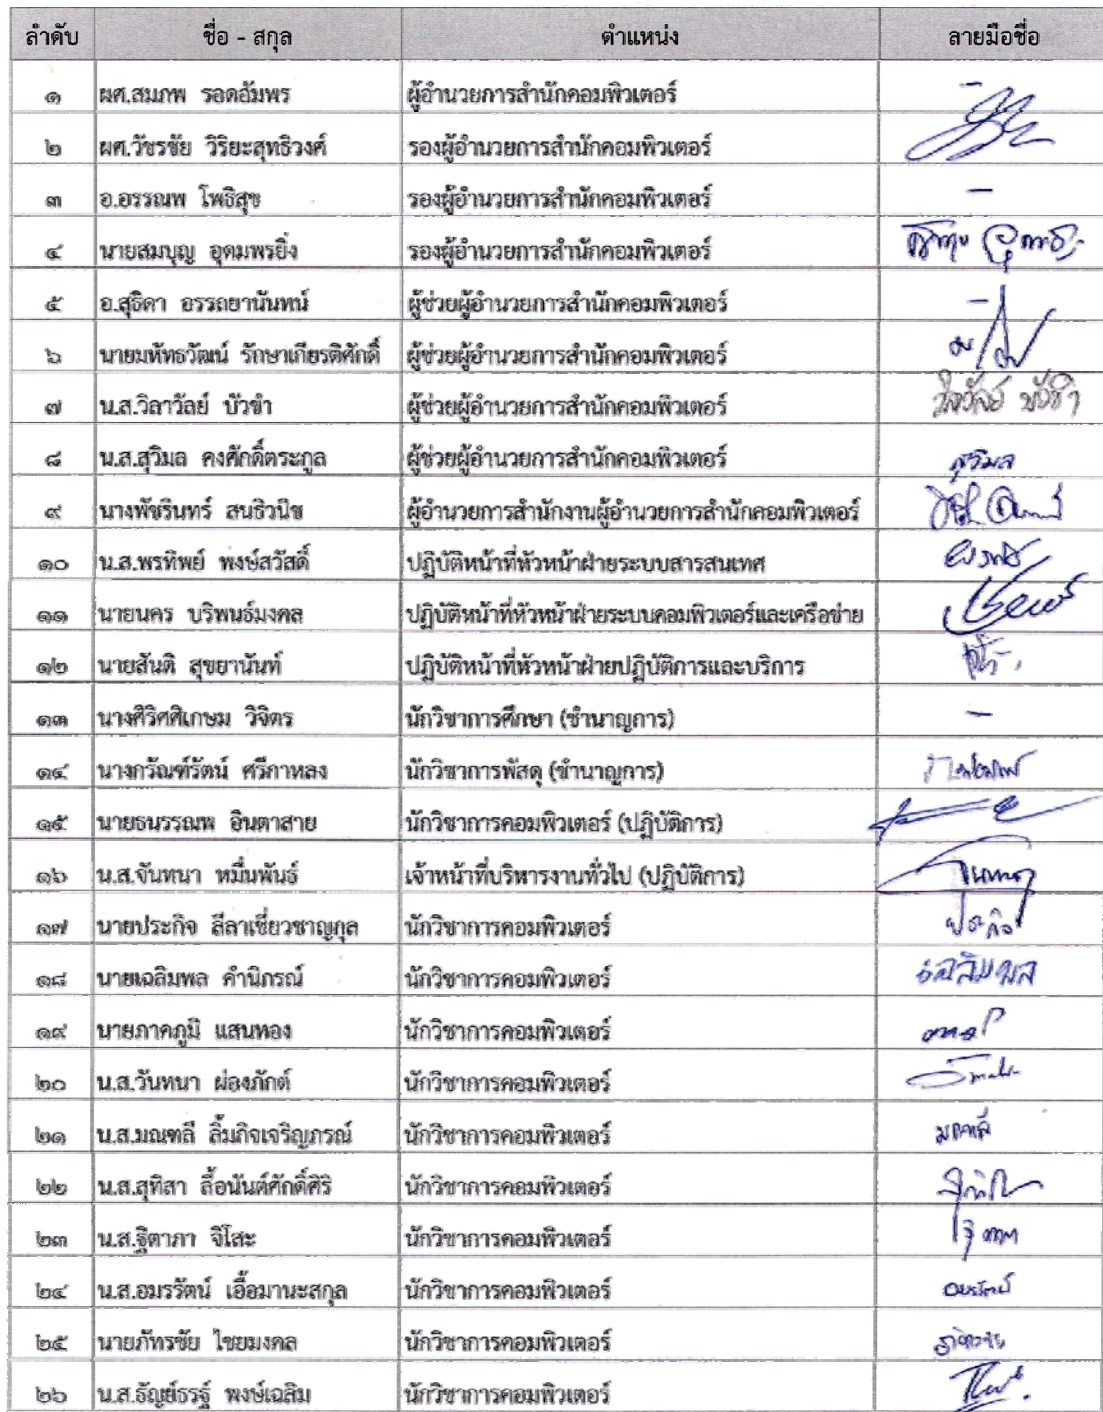 ลำดับ ชื่อ - สกุล ตำแหน่ง ลายมือชื่อ
๑ ผศ.สมภพ รอดอัมพร ผู้อำนวยการสำนักคอมพิวเตอร์ -
๒ ผศ.วัชรชัย วิริยะสุทธิวงศ์ รองผู้อำนวยการสำนักคอมพิวเตอร์
๓ อ.อรรณพ โพธิสุข รองผู้อำนวยการสำนักคอมพิวเตอร์ -
๔ นายสมบุญ อุดมพรยิ่ง รองผู้อำนวยการสำนักคอมพิวเตอร์
๕ อ.สุธิดา อรรถยานันทน์ ผู้ช่วยผู้อำนวยการสำนักคอมพิวเตอร์ -
๖ นายมหัทธวัฒน์ รักษาเกียรติศักดิ์ ผู้ช่วยผู้อำนวยการสำนักคอมพิวเตอร์
๗ น.ส.วิลาวัลย์ บัวขำ ผู้ช่วยผู้อำนวยการสำนักคอมพิวเตอร์ วิลาวัลย์ บัวขำ
๘ น.ส.สุวิมล คงศักดิ์ตระกูล ผู้ช่วยผู้อำนวยการสำนักคอมพิวเตอร์ สุวิมล
๙ นางพัชรินทร์ สนธิวนิช ผู้อำนวยการสำนักงานผู้อำนวยการสำนักคอมพิวเตอร์
๑๐ น.ส.พรทิพย์ พงษ์สวัสดิ์ ปฏิบัติหน้าที่หัวหน้าฝ่ายระบบสารสนเทศ
๑๑ นายนคร บริพนธ์มงคล ปฏิบัติหน้าที่หัวหน้าฝ่ายระบบคอมพิวเตอร์และเครือข่าย
๑๒ นายสันติ สุขยานันท์ ปฏิบัติหน้าที่หัวหน้าฝ่ายปฏิบัติการและบริการ
๑๓ นางศิริศศิเกษม วิจิตร นักวิชาการศึกษา (ชำนาญการ) -
๑๔ นางกรัณฑ์รัตน์ ศรีกาหลง นักวิชาการพัสดุ (ชำนาญการ)
๑๕ นายธนวรรณพ อินตาสาย นักวิชาการคอมพิวเตอร์ (ปฏิบัติการ)
๑๖ น.ส.จันทนา หมื่นพันธ์ เจ้าหน้าที่บริหารงานทั่วไป (ปฏิบัติการ)
๑๗ นายประกิจ ลีลาเชี่ยวชาญกุล นักวิชาการคอมพิวเตอร์ ประกิจ
๑๘ นายเฉลิมพล คำนิกรณ์ นักวิชาการคอมพิวเตอร์ เฉลิมพล
๑๙ นายภาคภูมิ แสนทอง นักวิชาการคอมพิวเตอร์
๒๐ น.ส.วันทนา ผ่องภักต์ นักวิชาการคอมพิวเตอร์
๒๑ น.ส.มณฑลี ลิ้มกิจเจริญภรณ์ นักวิชาการคอมพิวเตอร์ มณฑลี
๒๒ น.ส.สุทิสา ลื้อนันต์ศักดิ์ศิริ นักวิชาการคอมพิวเตอร์
๒๓ น.ส.ฐิตาภา จิโสะ นักวิชาการคอมพิวเตอร์
๒๔ น.ส.อมรรัตน์ เอื้อมานะสกุล นักวิชาการคอมพิวเตอร์ อมรรัตน์
๒๕ นายภัทรชัย ไชยมงคล นักวิชาการคอมพิวเตอร์ ภัทรชัย
๒๖ น.ส.ธัญย์ธรฐ์ พงษ์เฉลิม นักวิชาการคอมพิวเตอร์